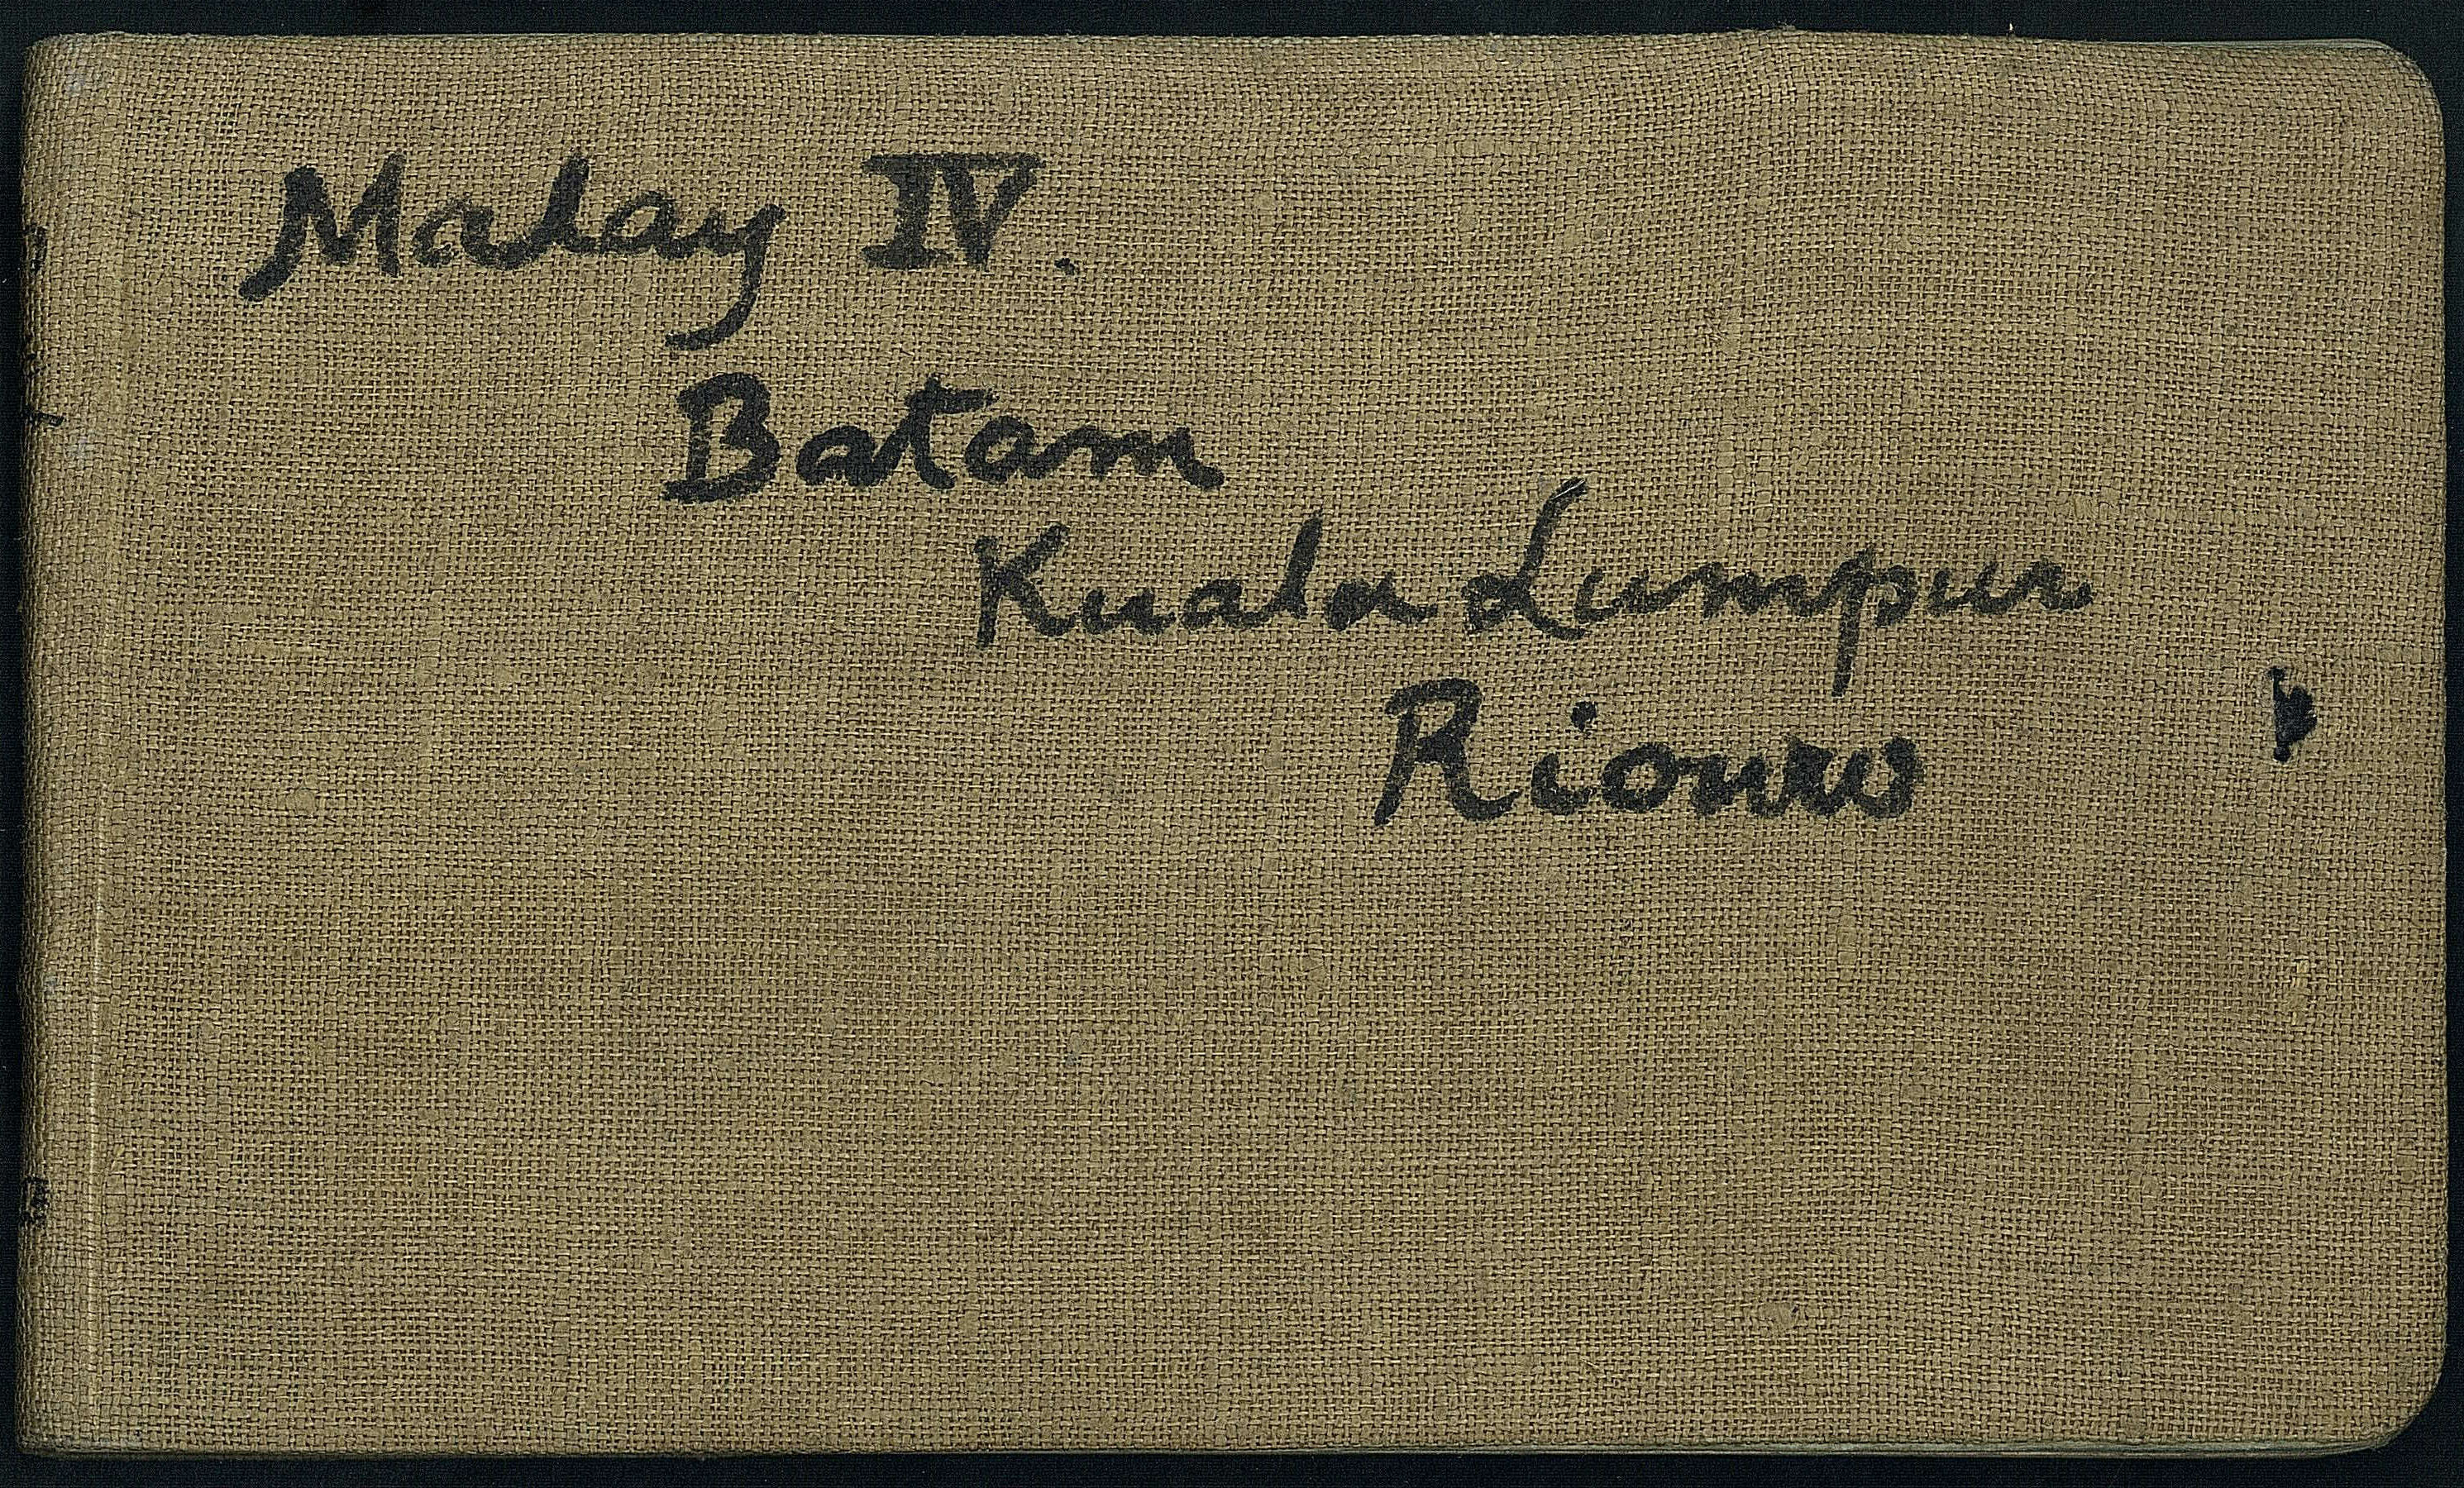 Malay IV.
Batam
Kuala Lumpur
Riouw